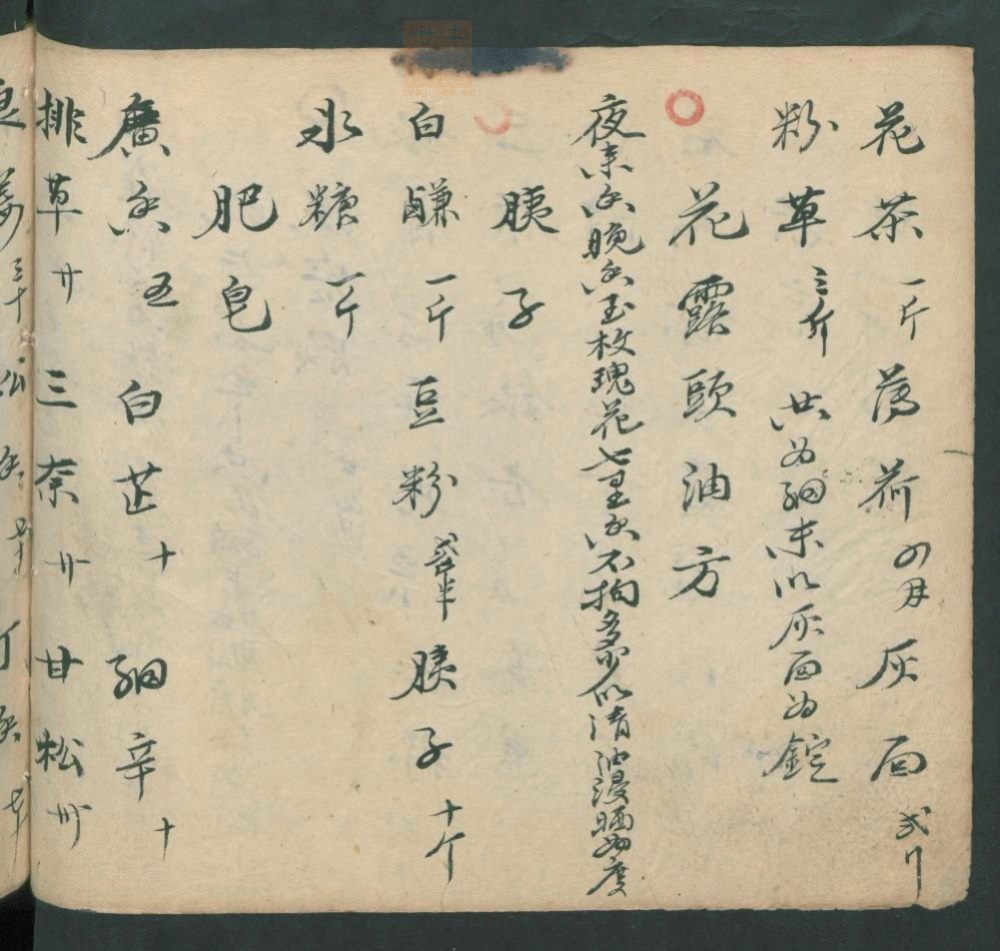 花茶一斤薄荷四月灰面弍斤
粉草三斤 共为細末以灰面为錠
花露頭油方
夜来香晚香玉枚瑰花七里香不拘多少以清油浸晒為度
胰子
白鹻一斤豆粉弍斤半胰子十斤
冰糖一斤
肥皂
廣香五 白芷十 細辛十
排草廿三柰廿甘松卅